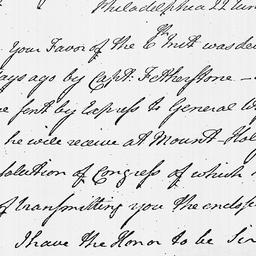 Philadelphia 22
Your Favor of the 6th Inst was
ays ago by Capt. Fetherstone -
sent by Express to General
he will receive at Mount Hol
solution of Congress of which
of transmitting you the enclose
I have the Honor to be Sir